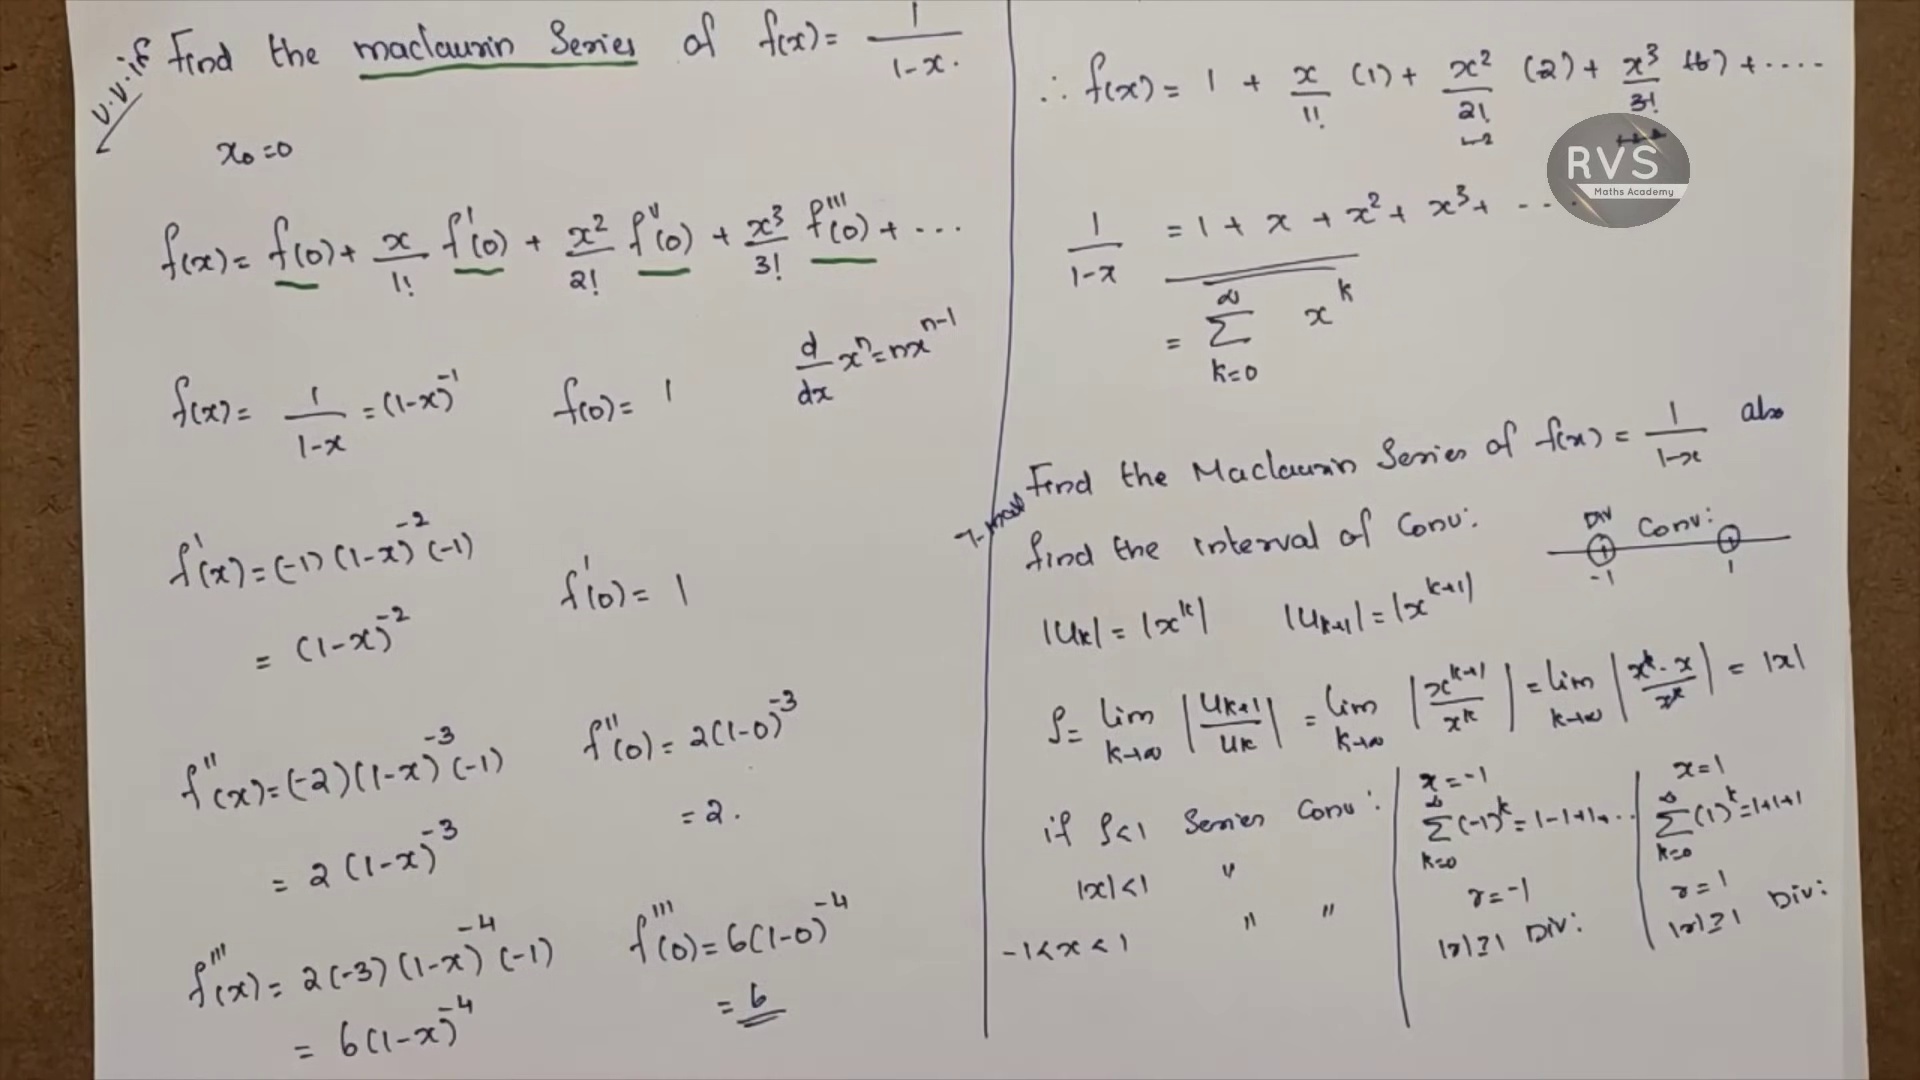 V.V.if Find the maclaurin Series of f(x) = 1/(1-x).
x₀=0
f(x) = f(0) + x/1! f'(0) + x²/2! f''(0) + x³/3! f'''(0) + ...
d/dx xⁿ = nxⁿ⁻¹
f(x) = 1/(1-x) = (1-x)⁻¹ f(0) = 1
f'(x) = (-1)(1-x)⁻²(-1)
= (1-x)⁻² f'(0) = 1
f''(x) = (-2)(1-x)⁻³(-1) f''(0) = 2(1-0)⁻³
= 2(1-x)⁻³ = 2.
f'''(x) = 2(-3)(1-x)⁻⁴(-1) f'''(0) = 6(1-0)⁻⁴
= 6(1-x)⁻⁴ = 6
∴ f(x) = 1 + x/1! (1) + x²/2! (2) + x³/3! (6) + ....
RVS
Maths Academy
1/(1-x) = 1 + x + x² + x³ + ...
= ∞ Σ k=0 xᵏ
Find the Maclaurin Series of f(x) = 1/(1-x) also
find the interval of Conv:
Div Conv:
-1 1
|Uk| = |xᵏ| |Uk+1| = |xᵏ⁺¹|
ρ = lim k→∞ |Uk+1/Uk| = lim k→∞ |xᵏ⁺¹/xᵏ| = lim k→∞ |xᵏ·x/xᵏ| = |x|
if ρ<1 Series Conv:
|x|<1 "
-1<x<1 " "
x=-1
∞ Σ k=0 (-1)ᵏ = 1-1+1+...
r=-1
|r|≥1 Div:
x=1
∞ Σ k=0 (1)ᵏ = 1+1+1
r=1
|r|≥1 Div: